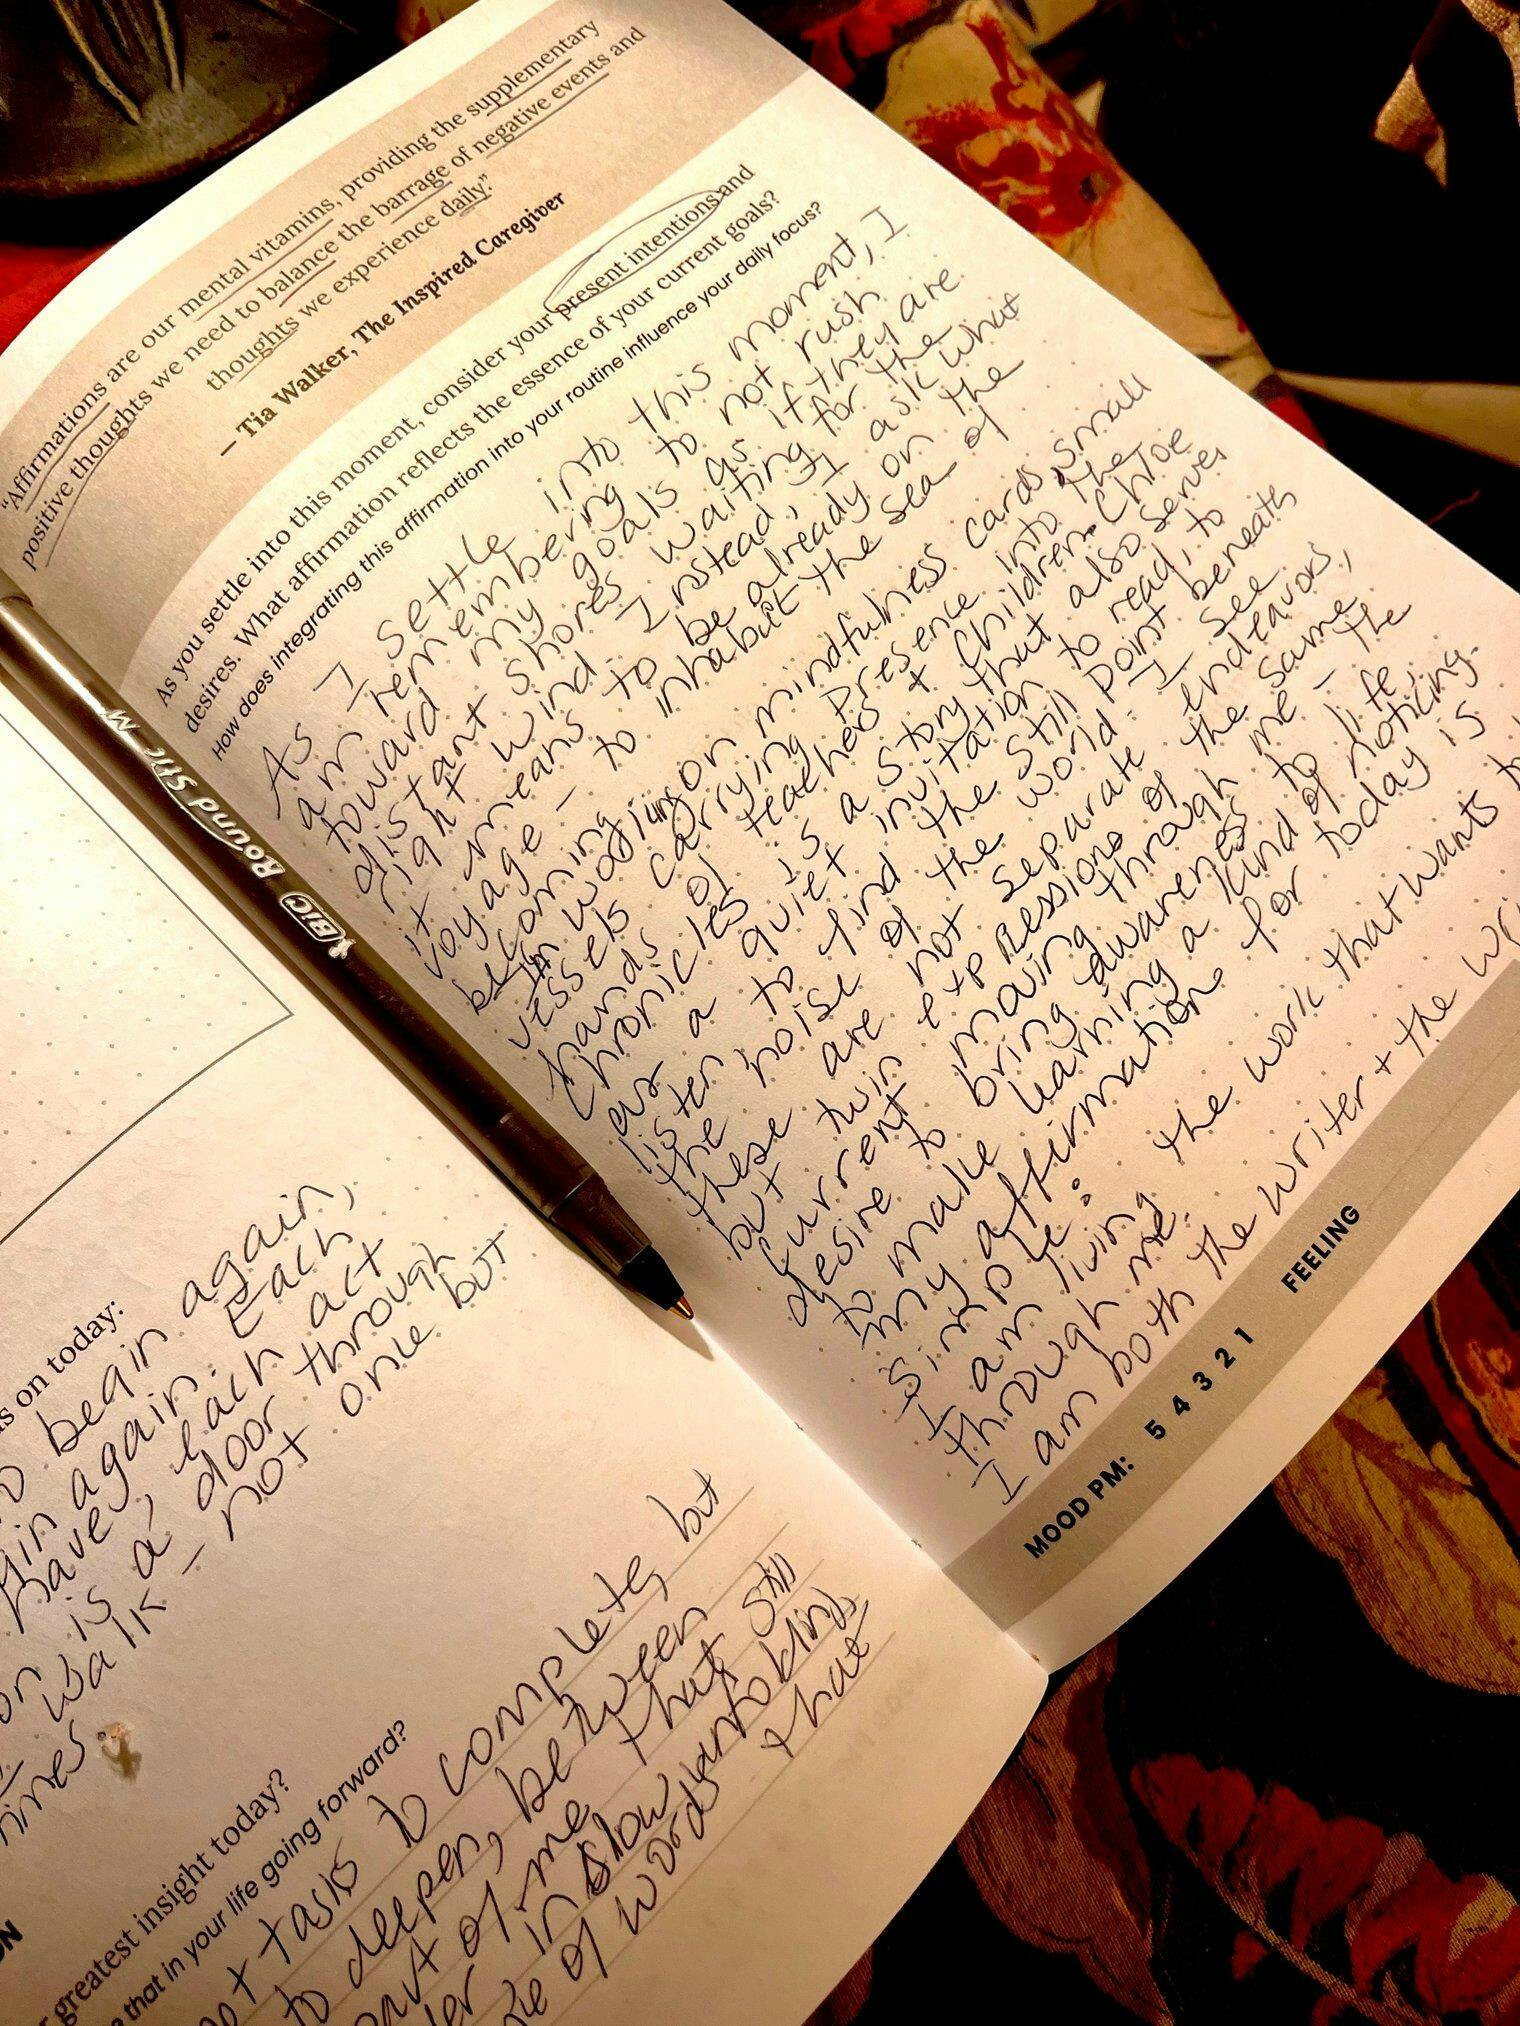 "Affirmations are our mental vitamins, providing the supplementary
positive thoughts we need to balance the barrage of negative events and
thoughts we experience daily."
– Tia Walker, The Inspired Caregiver
As you settle into this moment, consider your present intentions and
desires. What affirmation reflects the essence of your current goals?
How does integrating this affirmation into your routine influence your daily focus?
As I settle into this moment, I
am remembering to not rush
toward my goals as if they are
distant shores waiting for the
right wind. Instead, I ask what
it means to be already on the
voyage – to inhabit the sea of
becoming.
In working on mindfulness cards, small
vessels carrying presence into the
hands of teachers + children. Chloe
Chronicles is a story that also serves
as a quiet invitation to read, to
listen to find the still point beneath
the noise of the world. I see
these are not separate endeavors,
but twin expressions of the same
current moving through me – the
desire to bring awareness to life,
to make learning a kind of noticing.
My affirmation for today is
simple:
I am living the work that wants
through me.
I am both the writer + the
MOOD PM: 5 4 3 2 1 FEELING
BIC Round Stic M
s on today:
begin again,
again. Each
have, each act
is a door through
walk – not once but
greatest insight today?
that in your life going forward?
tasks to complete, but
to deepen, between
part of me that still
in slow
of words that